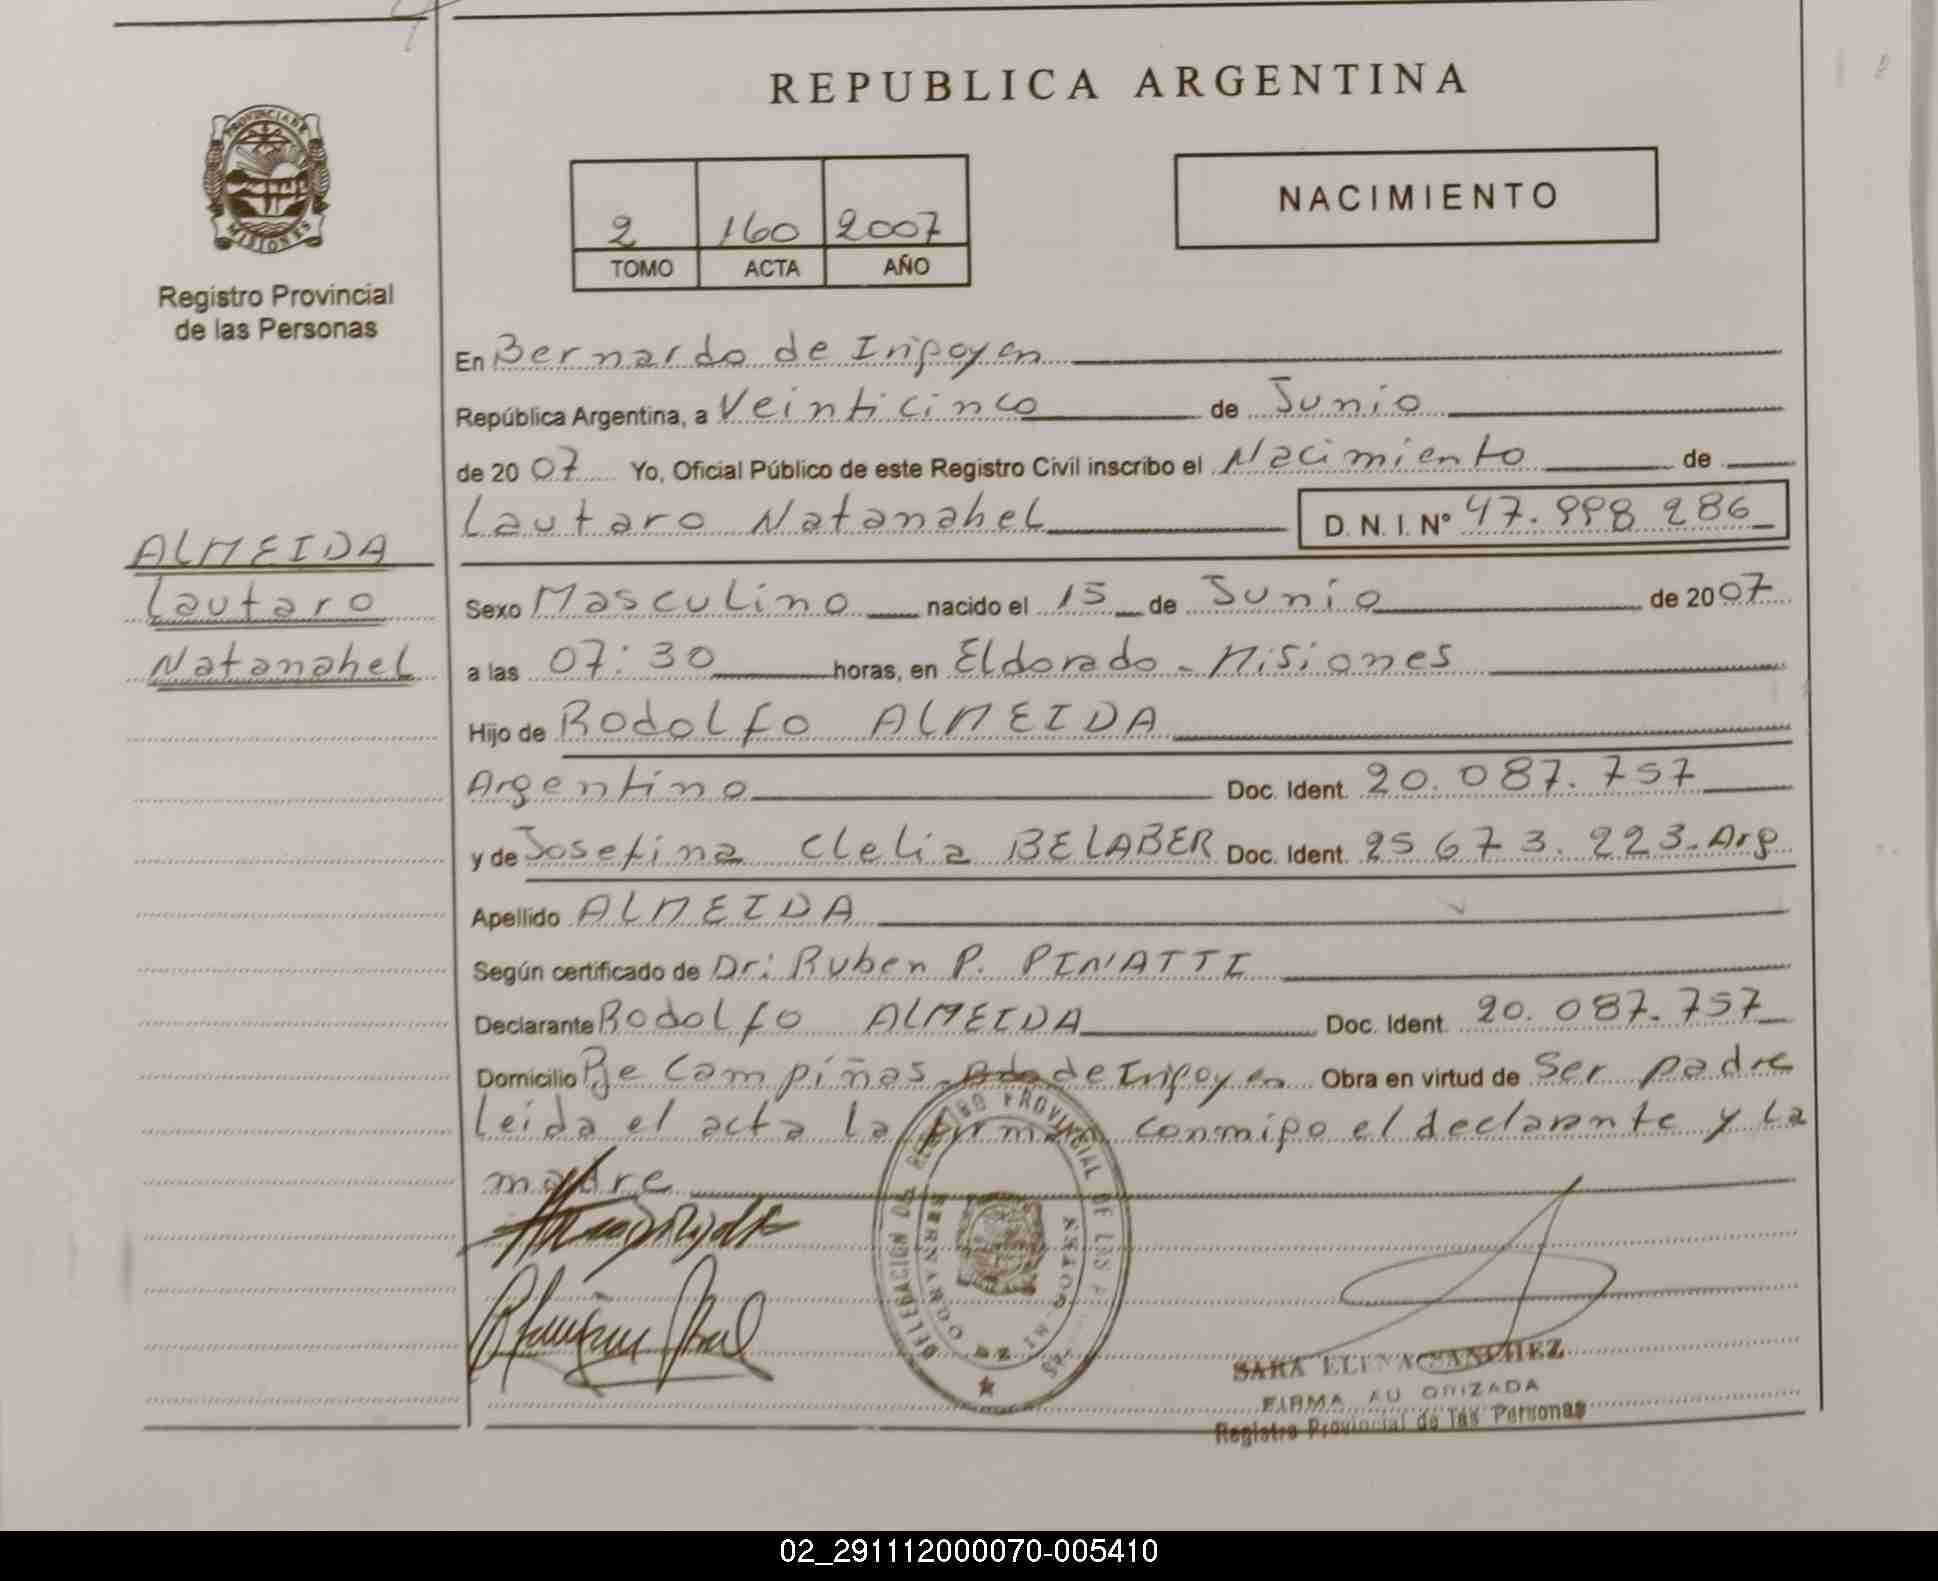 REPUBLICA ARGENTINA
PROVINCIA DE
MISIONES
Registro Provincial
de las Personas
2 160 2007
TOMO ACTA AÑO
NACIMIENTO
En Bernardo de Iripoyen
República Argentina, a Veinticinco de Junio
de 2007 Yo, Oficial Público de este Registro Civil inscribo el Nacimiento de
Lautaro Natanahel D. N. I. Nº 47.998 286
ALMEIDA
Lautaro
Natanahel
Sexo Masculino nacido el 15 de Junio de 2007
a las 07:30 horas, en Eldorado - Misiones
Hijo de Rodolfo ALMEIDA
Argentino Doc. Ident. 20.087.757
y de Josefina Clelia BELABER Doc. Ident. 25 673.223-Arg
Apellido ALMEIDA
Según certificado de Dr: Ruben P. PINATTI
Declarante Rodolfo ALMEIDA Doc. Ident. 20.087.757
Domicilio Pje Campiñas de Iripoyen Obra en virtud de Ser padre
leida el acta la firman conmipo el declarante y la
madre
DELEGACION DEL REGISTRO PROVINCIAL DE LAS
BERNARDO DE
SARA ELENA SANCHEZ
FIRMA AUTORIZADA
Registro Provincial de las Personas
02_291112000070-005410